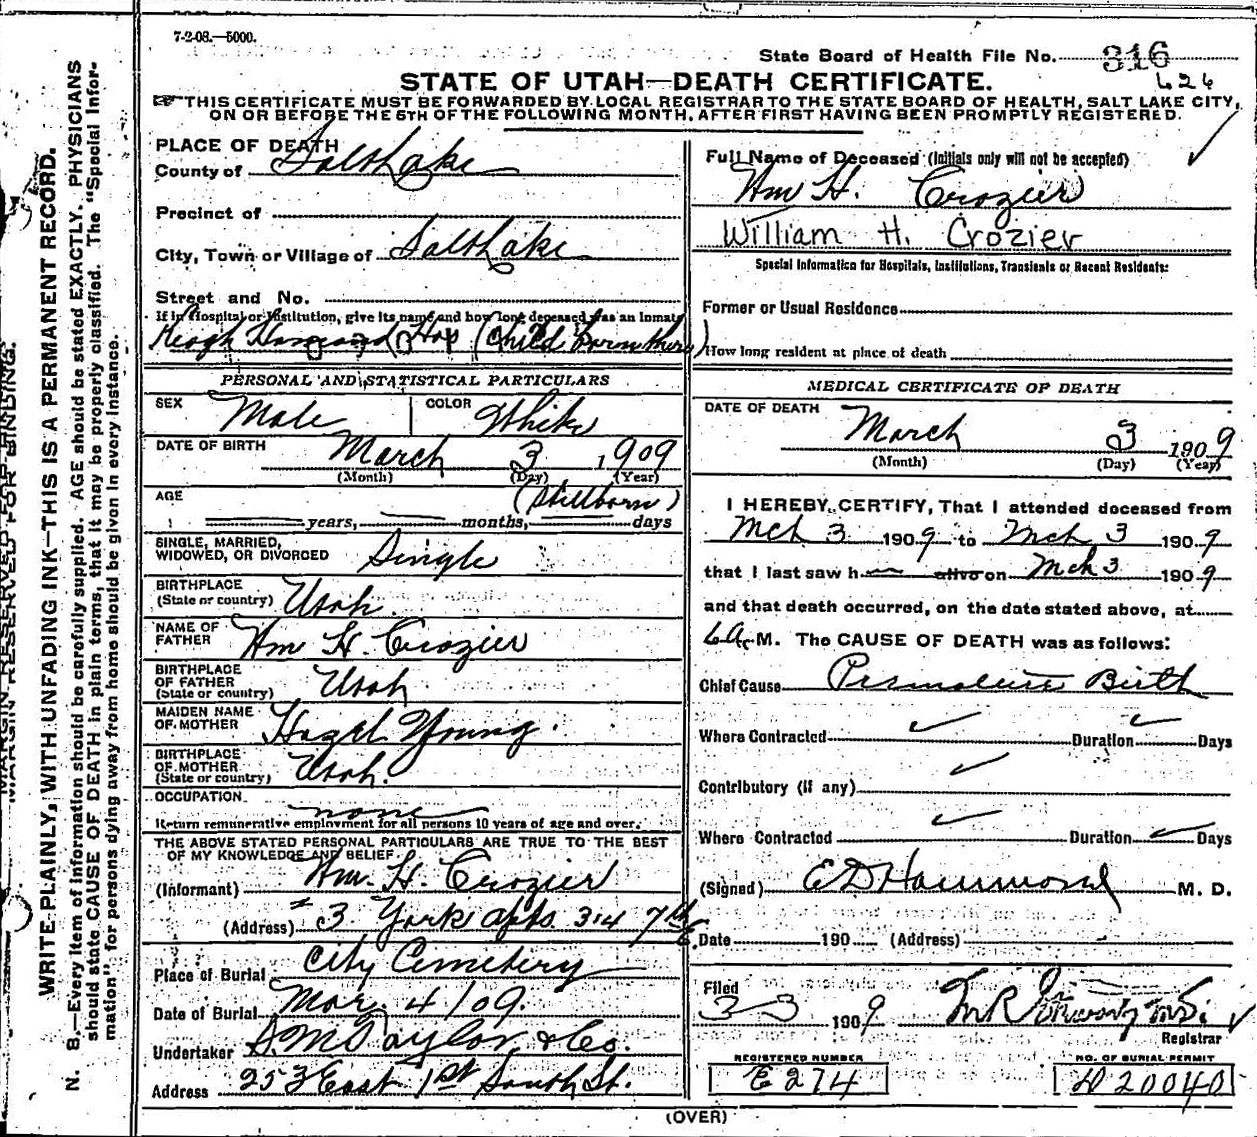 7-2-08.—5000.
State Board of Health File No. 316
626
STATE OF UTAH—DEATH CERTIFICATE.
THIS CERTIFICATE MUST BE FORWARDED BY LOCAL REGISTRAR TO THE STATE BOARD OF HEALTH, SALT LAKE CITY,
ON OR BEFORE THE 5TH OF THE FOLLOWING MONTH, AFTER FIRST HAVING BEEN PROMPTLY REGISTERED.
PLACE OF DEATH
County of Salt Lake
Precinct of
City, Town or Village of Salt Lake
Street and No.
If in Hospital or Institution, give its name and how long deceased was an inmate
Keogh Hammond Hosp (Child born there)
PERSONAL AND STATISTICAL PARTICULARS
SEX Male COLOR White
DATE OF BIRTH March 3 1909
(Month) (Day) (Year)
AGE (Stillborn)
years, months, days
SINGLE, MARRIED,
WIDOWED, OR DIVORCED Single
BIRTHPLACE
(State or country) Utah.
NAME OF
FATHER Wm H. Crozier
BIRTHPLACE
OF FATHER
(State or country) Utah
MAIDEN NAME
OF MOTHER Hazel Young.
BIRTHPLACE
OF MOTHER
(State or country) Utah.
OCCUPATION none
Return remunerative employment for all persons 10 years of age and over.
THE ABOVE STATED PERSONAL PARTICULARS ARE TRUE TO THE BEST
OF MY KNOWLEDGE AND BELIEF
(Informant) Wm. H. Crozier
(Address) # 3 York apts. 314 7th E
Place of Burial City Cemetery
Date of Burial Mar. 4/09.
Undertaker S.M. Taylor & Co.
Address 253 East 1st South St.
Full Name of Deceased (Initials only will not be accepted)
Wm H. Crozier
William H. Crozier
Special Information for Hospitals, Institutions, Transients or Recent Residents:
Former or Usual Residence
How long resident at place of death
MEDICAL CERTIFICATE OF DEATH
DATE OF DEATH March 3 1909
(Month) (Day) (Year)
I HEREBY CERTIFY, That I attended deceased from
Mch 3 1909 to Mch 3 1909
that I last saw h— alive on Mch 3 1909
and that death occurred, on the date stated above, at
6 A. M. The CAUSE OF DEATH was as follows:
Chief Cause Premature Birth
Where Contracted Duration Days
Contributory (if any)
Where Contracted Duration Days
(Signed) E D Hammond M. D.
Date 190 (Address)
Filed
3-3 1909
Registrar
REGISTERED NUMBER
E 274
NO. OF BURIAL PERMIT
D 20040
(OVER)
MARGIN RESERVED FOR BINDING.
WRITE PLAINLY, WITH UNFADING INK—THIS IS A PERMANENT RECORD.
N. B.—Every item of information should be carefully supplied. AGE should be stated EXACTLY. PHYSICIANS
should state CAUSE OF DEATH in plain terms, that it may be properly classified. The "Special Infor-
mation" for persons dying away from home should be given in every instance.